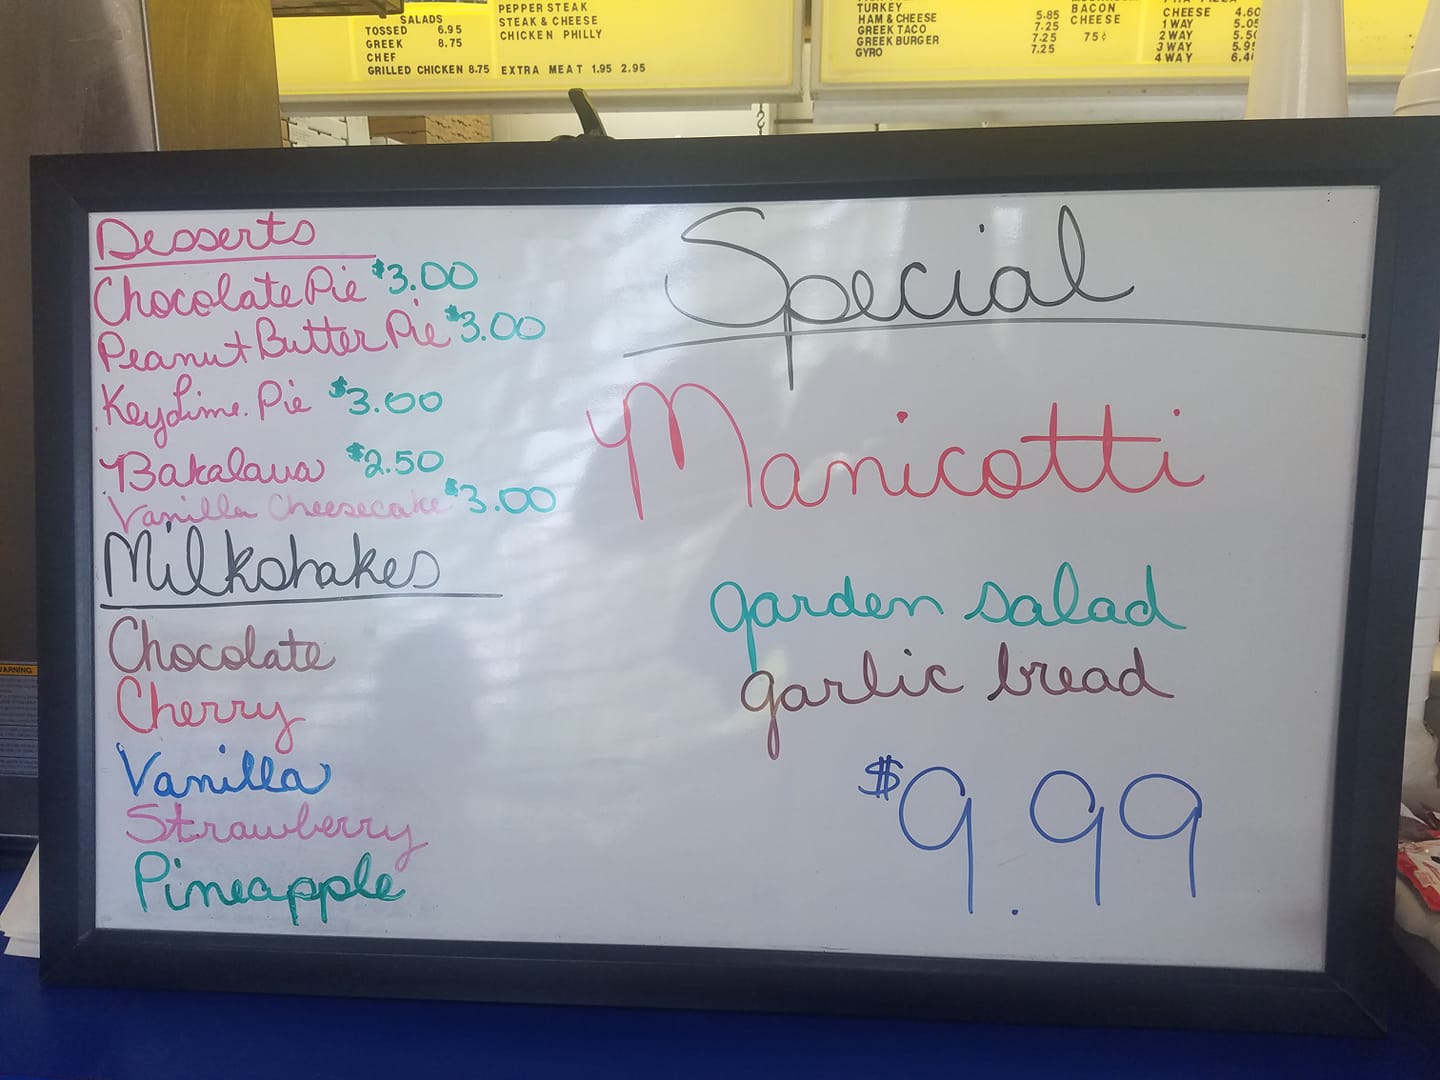 SALADS
TOSSED 6.95
GREEK 8.75
CHEF
GRILLED CHICKEN 8.75
PEPPER STEAK
STEAK & CHEESE
CHICKEN PHILLY
EXTRA MEAT 1.95 2.95
TURKEY
HAM & CHEESE 5.85
GREEK TACO 7.25
GREEK BURGER 7.25
GYRO 7.25
BACON
CHEESE
75¢
CHEESE 4.60
1 WAY 5.05
2 WAY
3 WAY
4 WAY
Desserts
Chocolate Pie $3.00
Peanut Butter Pie $3.00
Key Lime. Pie $3.00
Bakalava $2.50
Vanilla Cheesecake $3.00
Milkshakes
Chocolate
Cherry
Vanilla
Strawberry
Pineapple
Special
Manicotti
garden salad
garlic bread
$9.99
WARNING